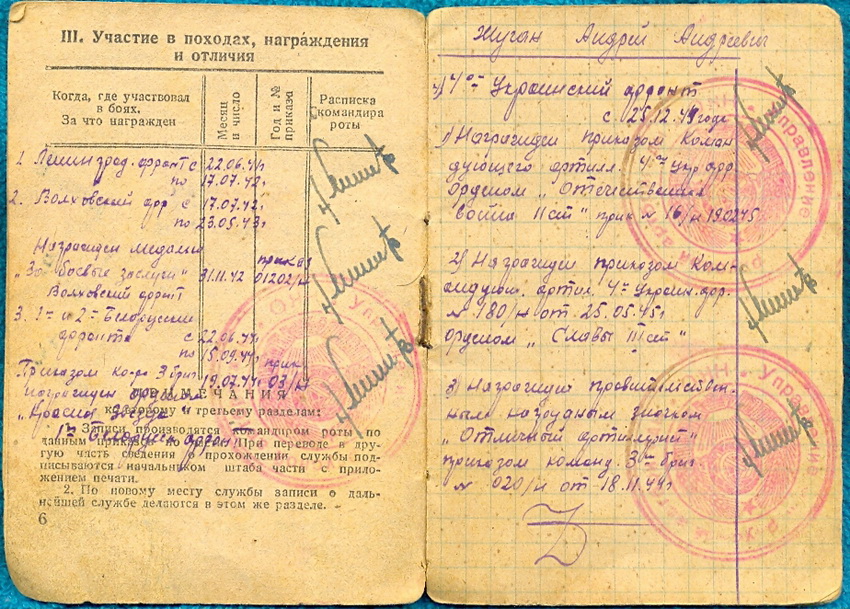 III. Участие в походах, награждения
и отличия
Когда, где участвовал
в боях.
За что награжден
Месяц
и число
Год и №
приказа
Расписка
командира
роты
1. Ленинград. фронт с 22.06.41г
по 17.07.42г
2. Волховский фр с 17.07.42г
по 23.05.43г
Награжден медалью
"За боевые заслуги" 31.11.42 приказ 01202/н
Волховский фронт
3. 1го и 2го Белорусский
фронта с 22.06.44г
по 15.09.44г
Приказом ком-ра 3 бриг 19.07.44г прик. 03/н
награжден орденом
"Красная Звезда"
ПРИМЕЧАНИЯ
к второму и третьему разделам:
1. Записи производятся командиром роты по
данным приказов по части. При переводе в дру-
гую часть сведения о прохождении службы под-
писываются начальником штаба части с прило-
жением печати.
2. По новому месту службы записи о даль-
нейшей службе делаются в этом же разделе.
6
Жуган Андрей Андреевич
4) 4ой Украинский фронт
с 25.12.44 года
1) Награжден приказом Коман
дующего артилл. 4го Укр. фр.
орденом "Отечественная
война II ст" прик № 16/н 19.02.45
2) Награжден приказом Ком-
андующ. артил. 4го Украин. фр.
№ 180/н от 25.05.45г
орденом "Славы III ст"
3) Награжден правительствен-
ным нагрудным значком
"Отличный артиллерист"
приказом команд. 3ей бриг.
№ 020/н от 18.11.44г
Управление
Управление